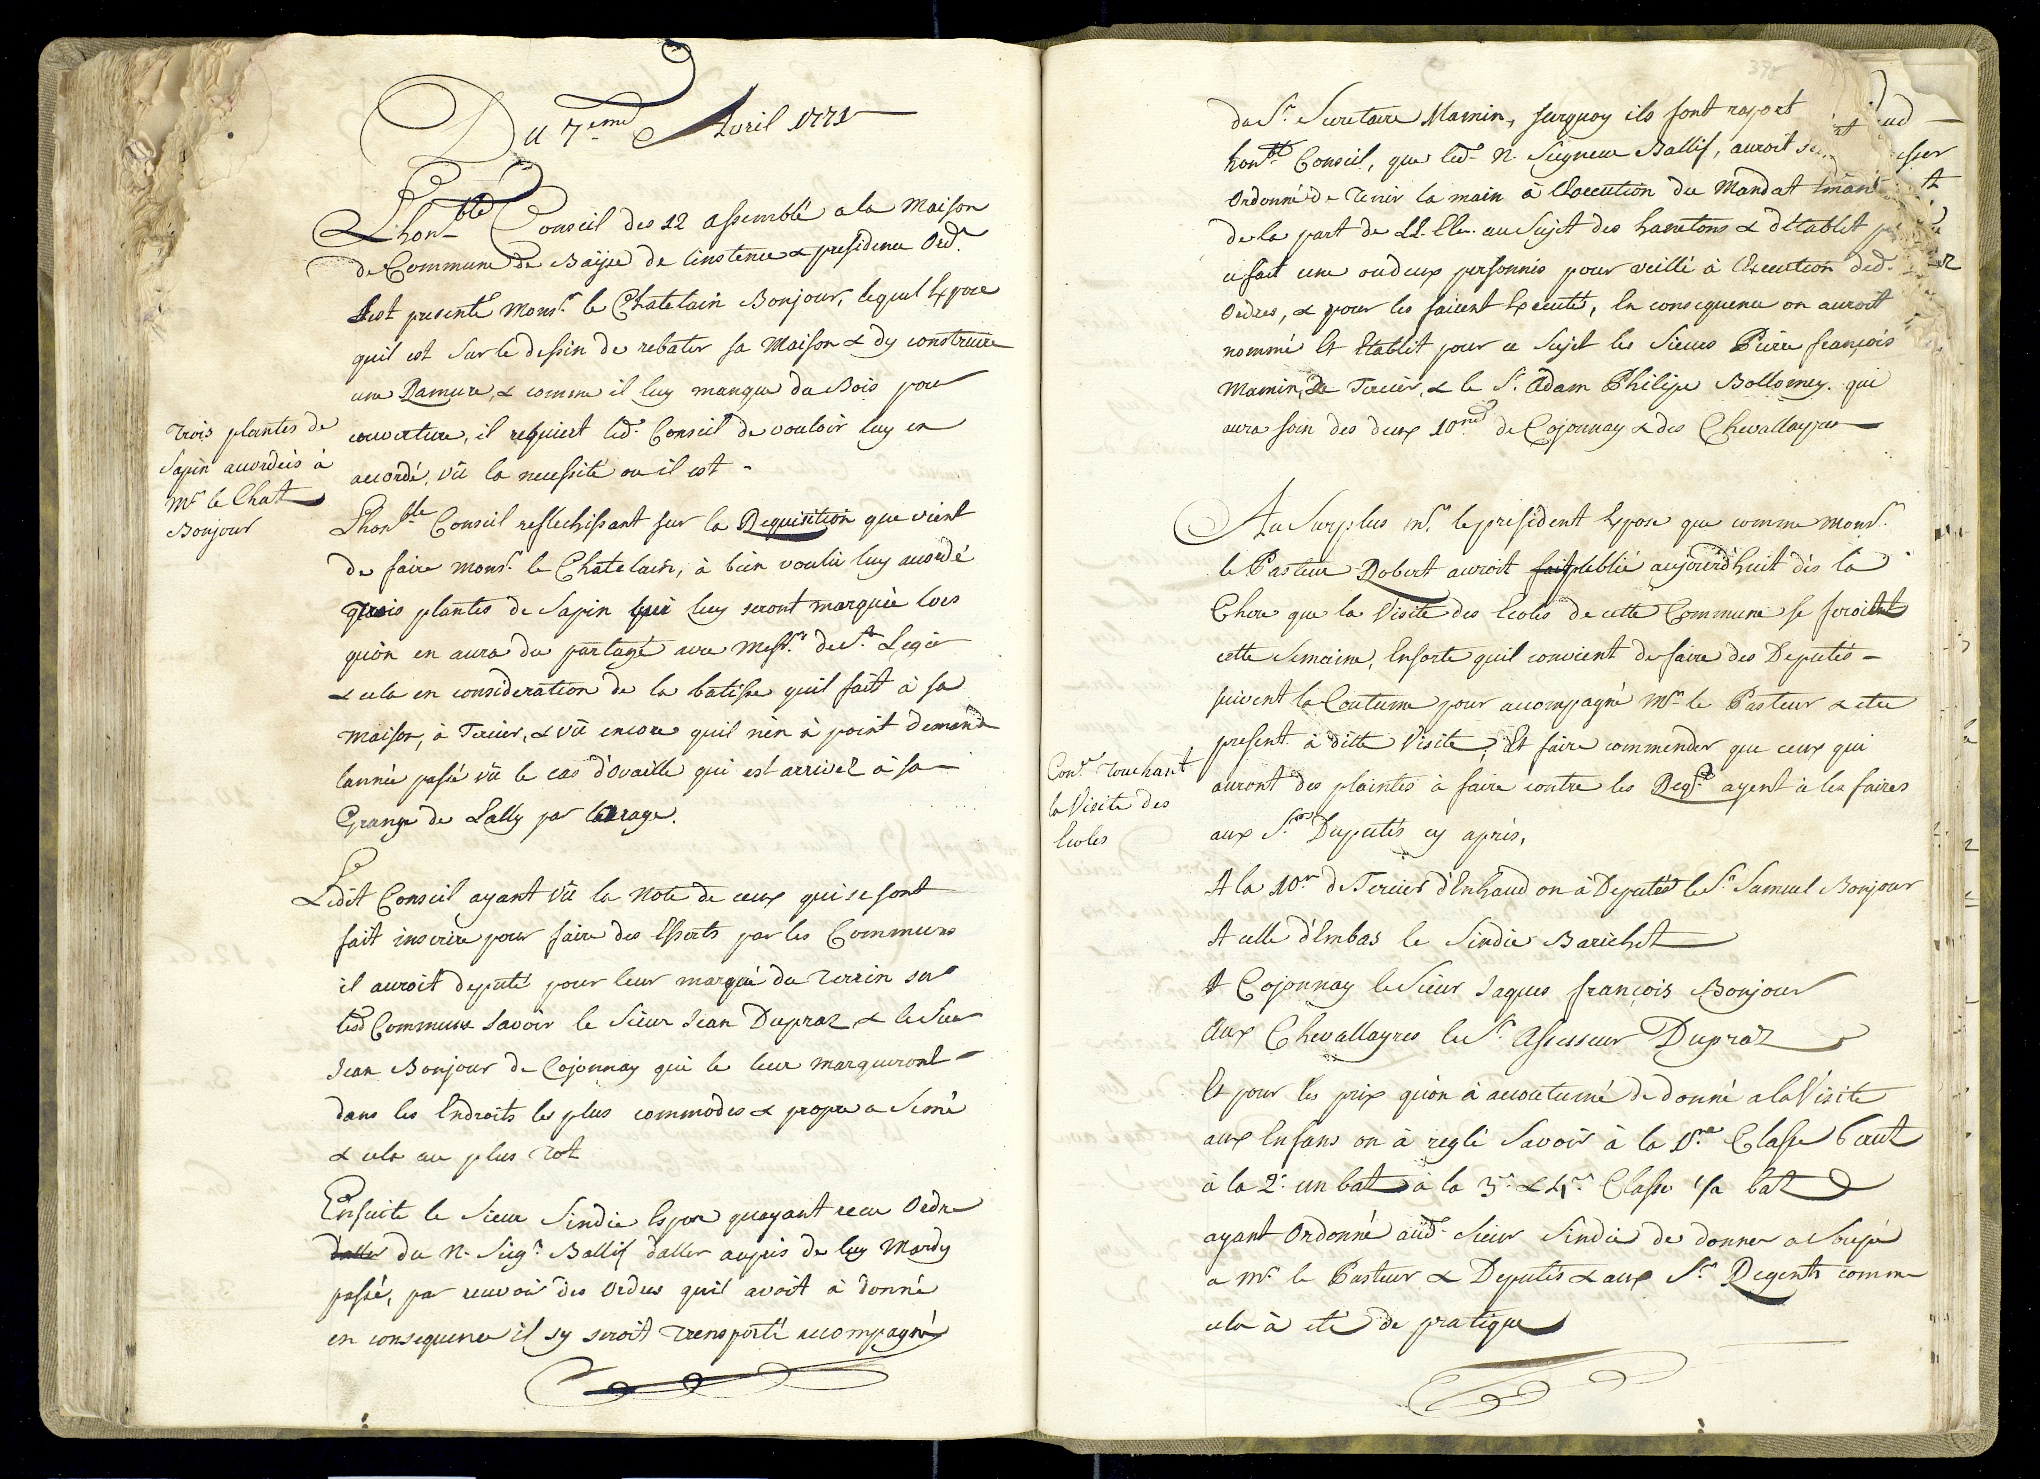 Du 7.eme Avril 1771
L'hon.ble Conseil des 12 assemblé a la Maison
de Commune de Baÿse de linstence & presidence Ord.re
Sest presenté Mons.r le Chatelain Bonjour, lequel Expose
quil est sur le dessin de rebatir sa Maison & dy construire
une Ramure, & comme il luy manque du Bois pour
couverture, il requiert led. Conseil de vouloir luy en
accordé, vû la necessité ou il est -
Trois plantes de
Sapin accordeés à
Mr. le Chat
Bonjour
L'hon.ble Conseil reflechissant sur la Requisition que vient
de faire Mons.r le Chatelain, à bien voulu luy accordé
trois plantes de Sapin qui luy seront marquée lors
quon en aura du partagé avec Mess.rs de St. Legier
& cela en consideration de la batisse quil fait à sa
maison, à Tercier, & vû encore quil nen à point demandé
lannée passé vû le cas d'ovaille qui est arrivéz à sa
Grange de Lally par lorage.
Ledit Conseil ayant vû la note de ceux qui se sont
fait inscrire pour faire des Esserts par les Communs
il auroit deputé pour leur marqué du Terrin sur
lesd. Communs savoir le Sieur Jean Dupraz & le Sieur
Jean Bonjour de Cojonnay qui le leur marqueront
dans les Endroits les plus commodes & propre a Semé
& cela au plus tot
Ensuite le Sieur Sindic Expose quayant recu Ordre
du N. Seig.r Ballif daller aupres de luy Mardy
passé, par recevoir des Ordres quil avoit à donné
en consequence il sy seroit Transporté accompagné
du Sr. Secretaire Mamin, surquoy ils font raport
hon.ble Conseil, que led. N. Seigneur Ballif, auroit
Ordonné de Tenir la main à lExecution du Mandat Emané
de la part de LL. EE. au Sujet des hannetons & d'Etablit
ce fait une ou deux personnes pour veillé à lExecution desd.
Ordres, & pour les faicent Executé, En consequence on auroit
nommé Et Etablit pour ce Sujet les Sieurs Piere françois
Mamin, de Tercier, & le Sr. Adam Philipe Bollomey. qui
aura soin des deux 10.nes de Cojonnay & des Chevallayres
Au Surplus Mr. le president Expose que comme Mons.r
le Pasteur Robert auroit publié aujourd'huit dès la
Chere que la Visite des Ecoles de cette Commune se feroient
cette Semaine, Ensorte quil convient de faire des Deputés -
suivent la Coutume pour accompagné Mr. le Pasteur & etre
present à ditte Visite, Et faire commender que ceux qui
auront des plaintes à faire contre les Reg.ts ayent à les faires
aux Srs. Deputés cy après,
Con.t Touchant
la Visite des
Ecoles
A la 10.ne de Tercier d'Enhaud on à Deputé le Sr. Samuel Bonjour
A celle d'Embas le Sindic Barichet
A Cojonnay le Sieur Jaques françois Bonjour
Aux Chevallayres le Sr. Assesseur Dupraz
Et pour les prix quon à accoutumé de donné a la Visite
aux Enfans on à reglé Savoir à la 1.re Classe 6 crut
à la 2.e un bat à la 3.e & 4.e Classe 1/2 bat
ayant Ordonné aud. Sieur Sindic de donner a Soupé
a Mr. le Pasteur & Deputés & aux Srs. Regents comme
cela à eté de pratique